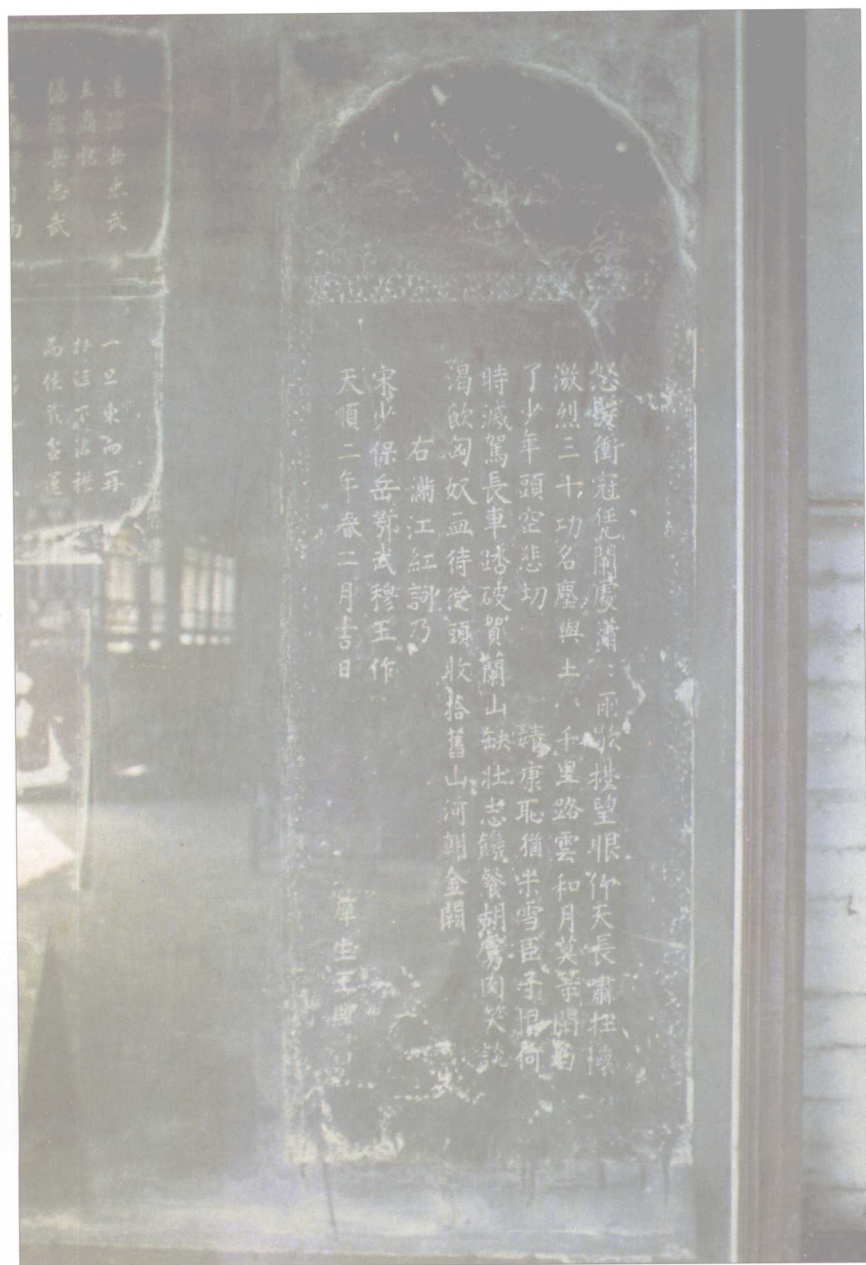 怒髮衝冠凭闌處瀟〻雨歇擡望眼仰天長嘯壯懷
激烈三十功名塵與土八千里路雲和月莫等閒白
了少年頭空悲切 靖康恥猶未雪臣子恨何
時滅駕長車踏破賀蘭山缺壯志饑餐胡虜肉笑談
渴飲匈奴血待從頭收拾舊山河朝金闕
右滿江紅詞乃
宋少保岳鄂武穆王作
天順二年春二月吉日 庠生王熙書
湯陰岳忠武
王廟
湯陰岳忠武
一旦東而再